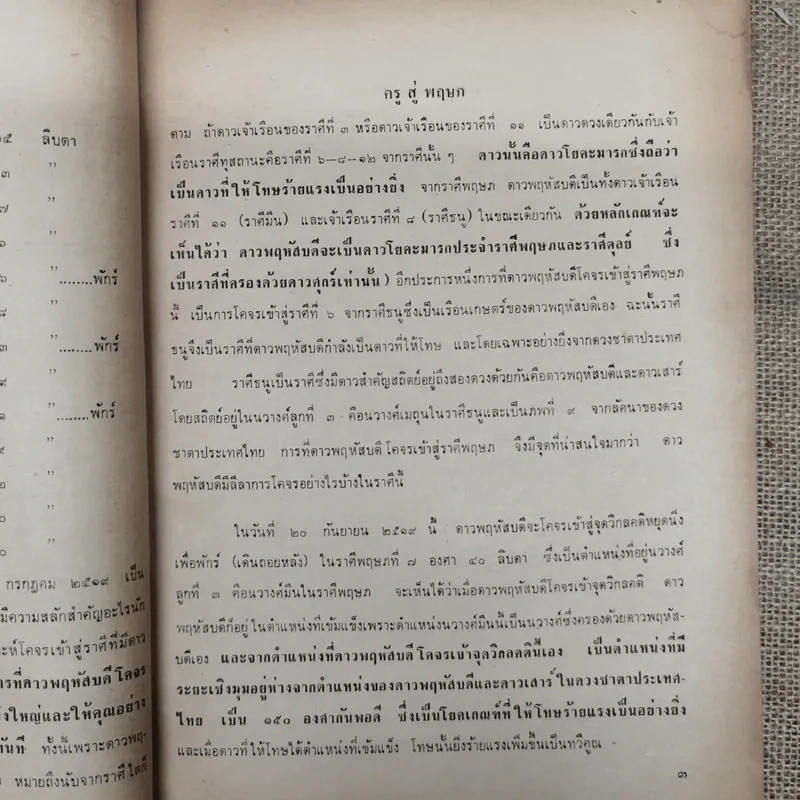 ๑๕ ลิบดา
๓ ”
๗ ”
๖ ”
๖ ”........พักร์
๘ ”
๓ ”........พักร์
๙ ”
๑ ”........พักร์
๙ ”
๒ ”
๐ ”
๐ ”
กรกฎาคม ๒๕๑๙ เป็น
มีความสลักสำคัญอะไรนัก
ะห์โคจรเข้าสู่ราศีที่มีดาว
ารที่ดาวพฤหัสบดีโคจร
งใหญ่และให้คุณอย่าง
ทันที ทั้งนี้เพราะดาวพฤ-
หมายถึงนับจากราศีใดก็
ครู สู่ พฤษภ
ตาม ถ้าดาวเจ้าเรือนของราศีที่ ๓ หรือดาวเจ้าเรือนของราศีที่ ๑๑ เป็นดาวดวงเดียวกันกับเจ้า
เรือนราศีทุสถานะคือราศีที่ ๖—๘—๑๒ จากราศีนั้น ๆ ดาวนั้นคือดาวโยคะมารกซึ่งถือว่า
เป็นดาวที่ให้โทษร้ายแรงเป็นอย่างยิ่ง จากราศีพฤษภ ดาวพฤหัสบดีเป็นทั้งดาวเจ้าเรือน
ราศีที่ ๑๑ (ราศีมีน) และเจ้าเรือนราศีที่ ๘ (ราศีธนู) ในขณะเดียวกัน ด้วยหลักเกณฑ์จะ
เห็นได้ว่า ดาวพฤหัสบดีจะเป็นดาวโยคะมารกประจำราศีพฤษภและราศีตุลย์ ซึ่ง
เป็นราศีที่ครองด้วยดาวศุกร์เท่านั้น) อีกประการหนึ่งการที่ดาวพฤหัสบดีโคจรเข้าสู่ราศีพฤษภ
นี้ เป็นการโคจรเข้าสู่ราศีที่ ๖ จากราศีธนูซึ่งเป็นเรือนเกษตร์ของดาวพฤหัสบดีเอง ฉะนั้นราศี
ธนูจึงเป็นราศีที่ดาวพฤหัสบดีกำลังเป็นดาวที่ให้โทษ และโดยเฉพาะอย่างยิ่งจากดวงชาตาประเทศ
ไทย ราศีธนูเป็นราศีซึ่งมีดาวสำคัญสถิตย์อยู่ถึงสองดวงด้วยกันคือดาวพฤหัสบดีและดาวเสาร์
โดยสถิตย์อยู่ในนวางค์ลูกที่ ๓ คือนวางค์เมถุนในราศีธนูและเป็นภพที่ ๙ จากลัคนาของดวง
ชาตาประเทศไทย การที่ดาวพฤหัสบดีโคจรเข้าสู่ราศีพฤษภ จึงมีจุดที่น่าสนใจมากว่า ดาว
พฤหัสบดีมีลีลาการโคจรอย่างไรบ้างในราศีนี้
ในวันที่ ๒๐ กันยายน ๒๕๑๙ นี้ ดาวพฤหัสบดีจะโคจรเข้าสู่จุดวิกลคติหยุดนิ่ง
เพื่อพักร์ (เดินถอยหลัง) ในราศีพฤษภที่ ๗ องศา ๔๐ ลิบดา ซึ่งเป็นตำแหน่งที่อยู่นวางค์
ลูกที่ ๓ คือนวางค์มีนในราศีพฤษภ จะเห็นได้ว่าเมื่อดาวพฤหัสบดีโคจรเข้าจุดวิกลคติ ดาว
พฤหัสบดีก็อยู่ในตำแหน่งที่เข้มแข็งเพราะตำแหน่งนวางค์มีนนี้เป็นนวางค์ซึ่งครองด้วยดาวพฤหัส-
บดีเอง และจากตำแหน่งที่ดาวพฤหัสบดีโคจรเข้าจุดวิกลคตินี้เอง เป็นตำแหน่งที่มี
ระยะเชิงมุมอยู่ห่างจากตำแหน่งของดาวพฤหัสบดีและดาวเสาร์ในดวงชาตาประเทศ-
ไทย เป็น ๑๕๐ องศากันพอดี ซึ่งเป็นโยคเกณฑ์ที่ให้โทษร้ายแรงเป็นอย่างยิ่ง
และเมื่อดาวที่ให้โทษได้ตำแหน่งที่เข้มแข็ง โทษนั้นยิ่งร้ายแรงเพิ่มขึ้นเป็นทวีคูณ
๓